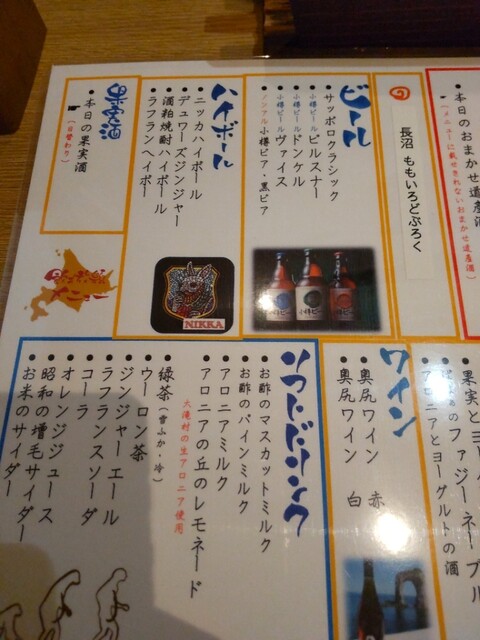 本日のおまかせ道産酒
(メニューに載せきれないおまかせ道産酒)
長沼 ももいろどぶろく
ビール
●サッポロクラシック
●小樽ビール ピルスナー
●小樽ビール ドンケル
●小樽ビール ヴァイス
●ノンアル小樽ビア・黒ビア
ハイボール
●ニッカハイボール
●デュワーズジンジャー
●酒粕焼酎ハイボール
●ラフランハイボー
NIKKA
果実酒
●本日の果実酒
(日替わり)
●アロニアとヨーグルトの酒
ワイン
●奥尻ワイン 赤
●奥尻ワイン 白
ソフトドリンク
●お酢のマスカットミルク
●お酢のパインミルク
●アロニアミルク
●アロニアの丘のレモネード
大滝村の生アロニア使用
●緑茶(雪ふか・冷)
●ウーロン茶
●ジンジャーエール
●ラフランスソーダ
●コーラ
●オレンジジュース
●昭和の増毛サイダー
●お米のサイダー